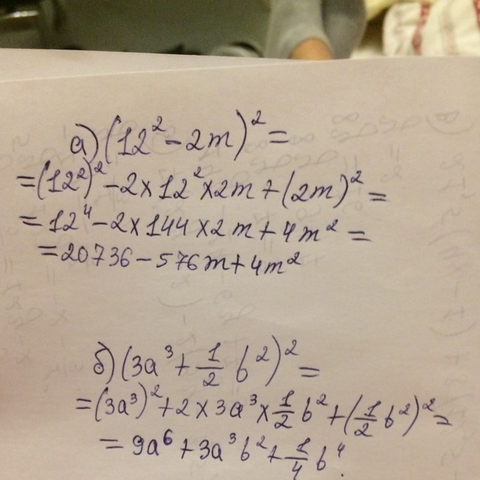 а) (12² - 2m)² =
= (12²)² - 2 x 12² x 2m + (2m)² =
= 12⁴ - 2 x 144 x 2m + 4m² =
= 20736 - 576m + 4m²
б) (3a³ + 1/2 b²)² =
= (3a³)² + 2 x 3a³ x 1/2 b² + (1/2 b²)² =
= 9a⁶ + 3a³b² + 1/4 b⁴.